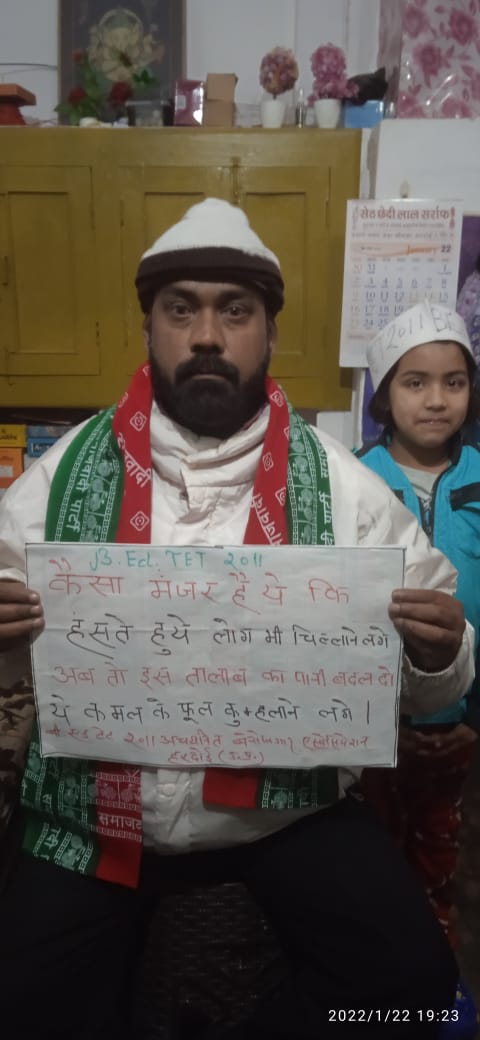 सेठ छेदी लाल सर्राफ
January 22
2011
समाजवादी पार्टी
B.Ed. TET 2011
कैसा मंजर है ये कि
हंसते हुये लोग भी चिल्लाने लगे
अब तो इस तालाब का पानी बदल दो
ये कमल के फूल कुम्हलाने लगे।
बी एड टेट 2011 अचयनित बेरोजगार एसोसियेशन
हरदोई (उ.प्र.)
समाजव
2022/1/22 19:23